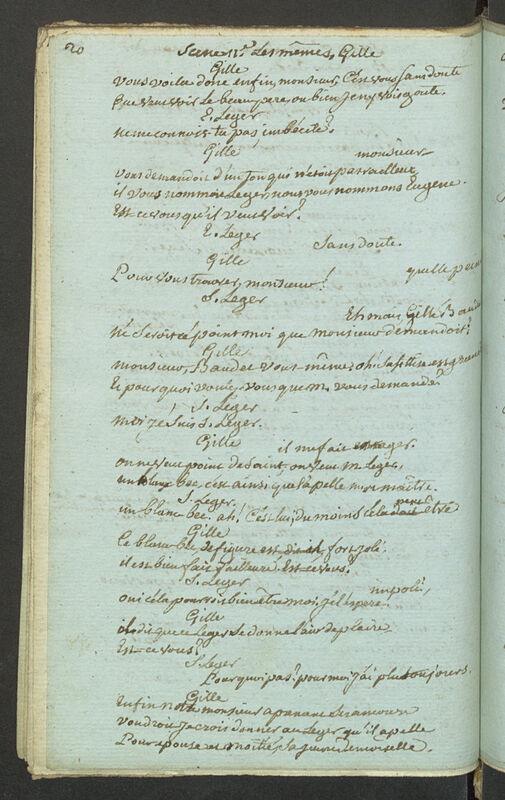 20
Scene 11e. Les mêmes, Gille
Gille
Vous voila donc enfin, monsieur, C'est vous sans doute
Que veut voir le beaupere, ou bien je n'y vois goute.
E. Leger
ne me connois-tu pas, imbécile?
Gille
monsieur
Vous demandoit d'un ton qui n'etoit pas railleur
il vous nomme Leger, nous vous nommons Eugene.
Est ce vous qu'il veut voir?
E. Leger
Sans doute.
Gille
quelle peine
Pour vous trouver, monsieur!
S. Leger
Eh mais, Gille Baudet
Ne seroit-ce point moi que monsieur demandoit?
Gille
monsieur, Baudet vous-même; oh! la bêtise est grande
Et pourquoi voulez-vous que m. vous demande?
S. Leger
moi, je suis S. Leger.
Gille
il me fait enrager.
on ne veut point de Saint, on veut m. Leger,
un blanc bec, c'est ainsi que l'apelle mon maître.
S. Leger.
un blanc bec, ah! C'est lui, du moins cela peut être
Gille
Ce blanc bec de figure est dit-il fort joli.
il est bien fait d'ailleurs. Est-ce vous?
S. Leger
impoli,
oui cela pourroit bien être moi, je l'espere.
Gille
il dit que ce Leger se donne l'air de plaire
Est-ce vous?
S. Leger
Pourquoi pas? pour moi j'ai plu toujours.
Gille
Enfin notre monsieur aprenant ses amours
Voudroit je crois donner au Leger qu'il apelle
Pour epouse et moitié sa jeune demoiselle.